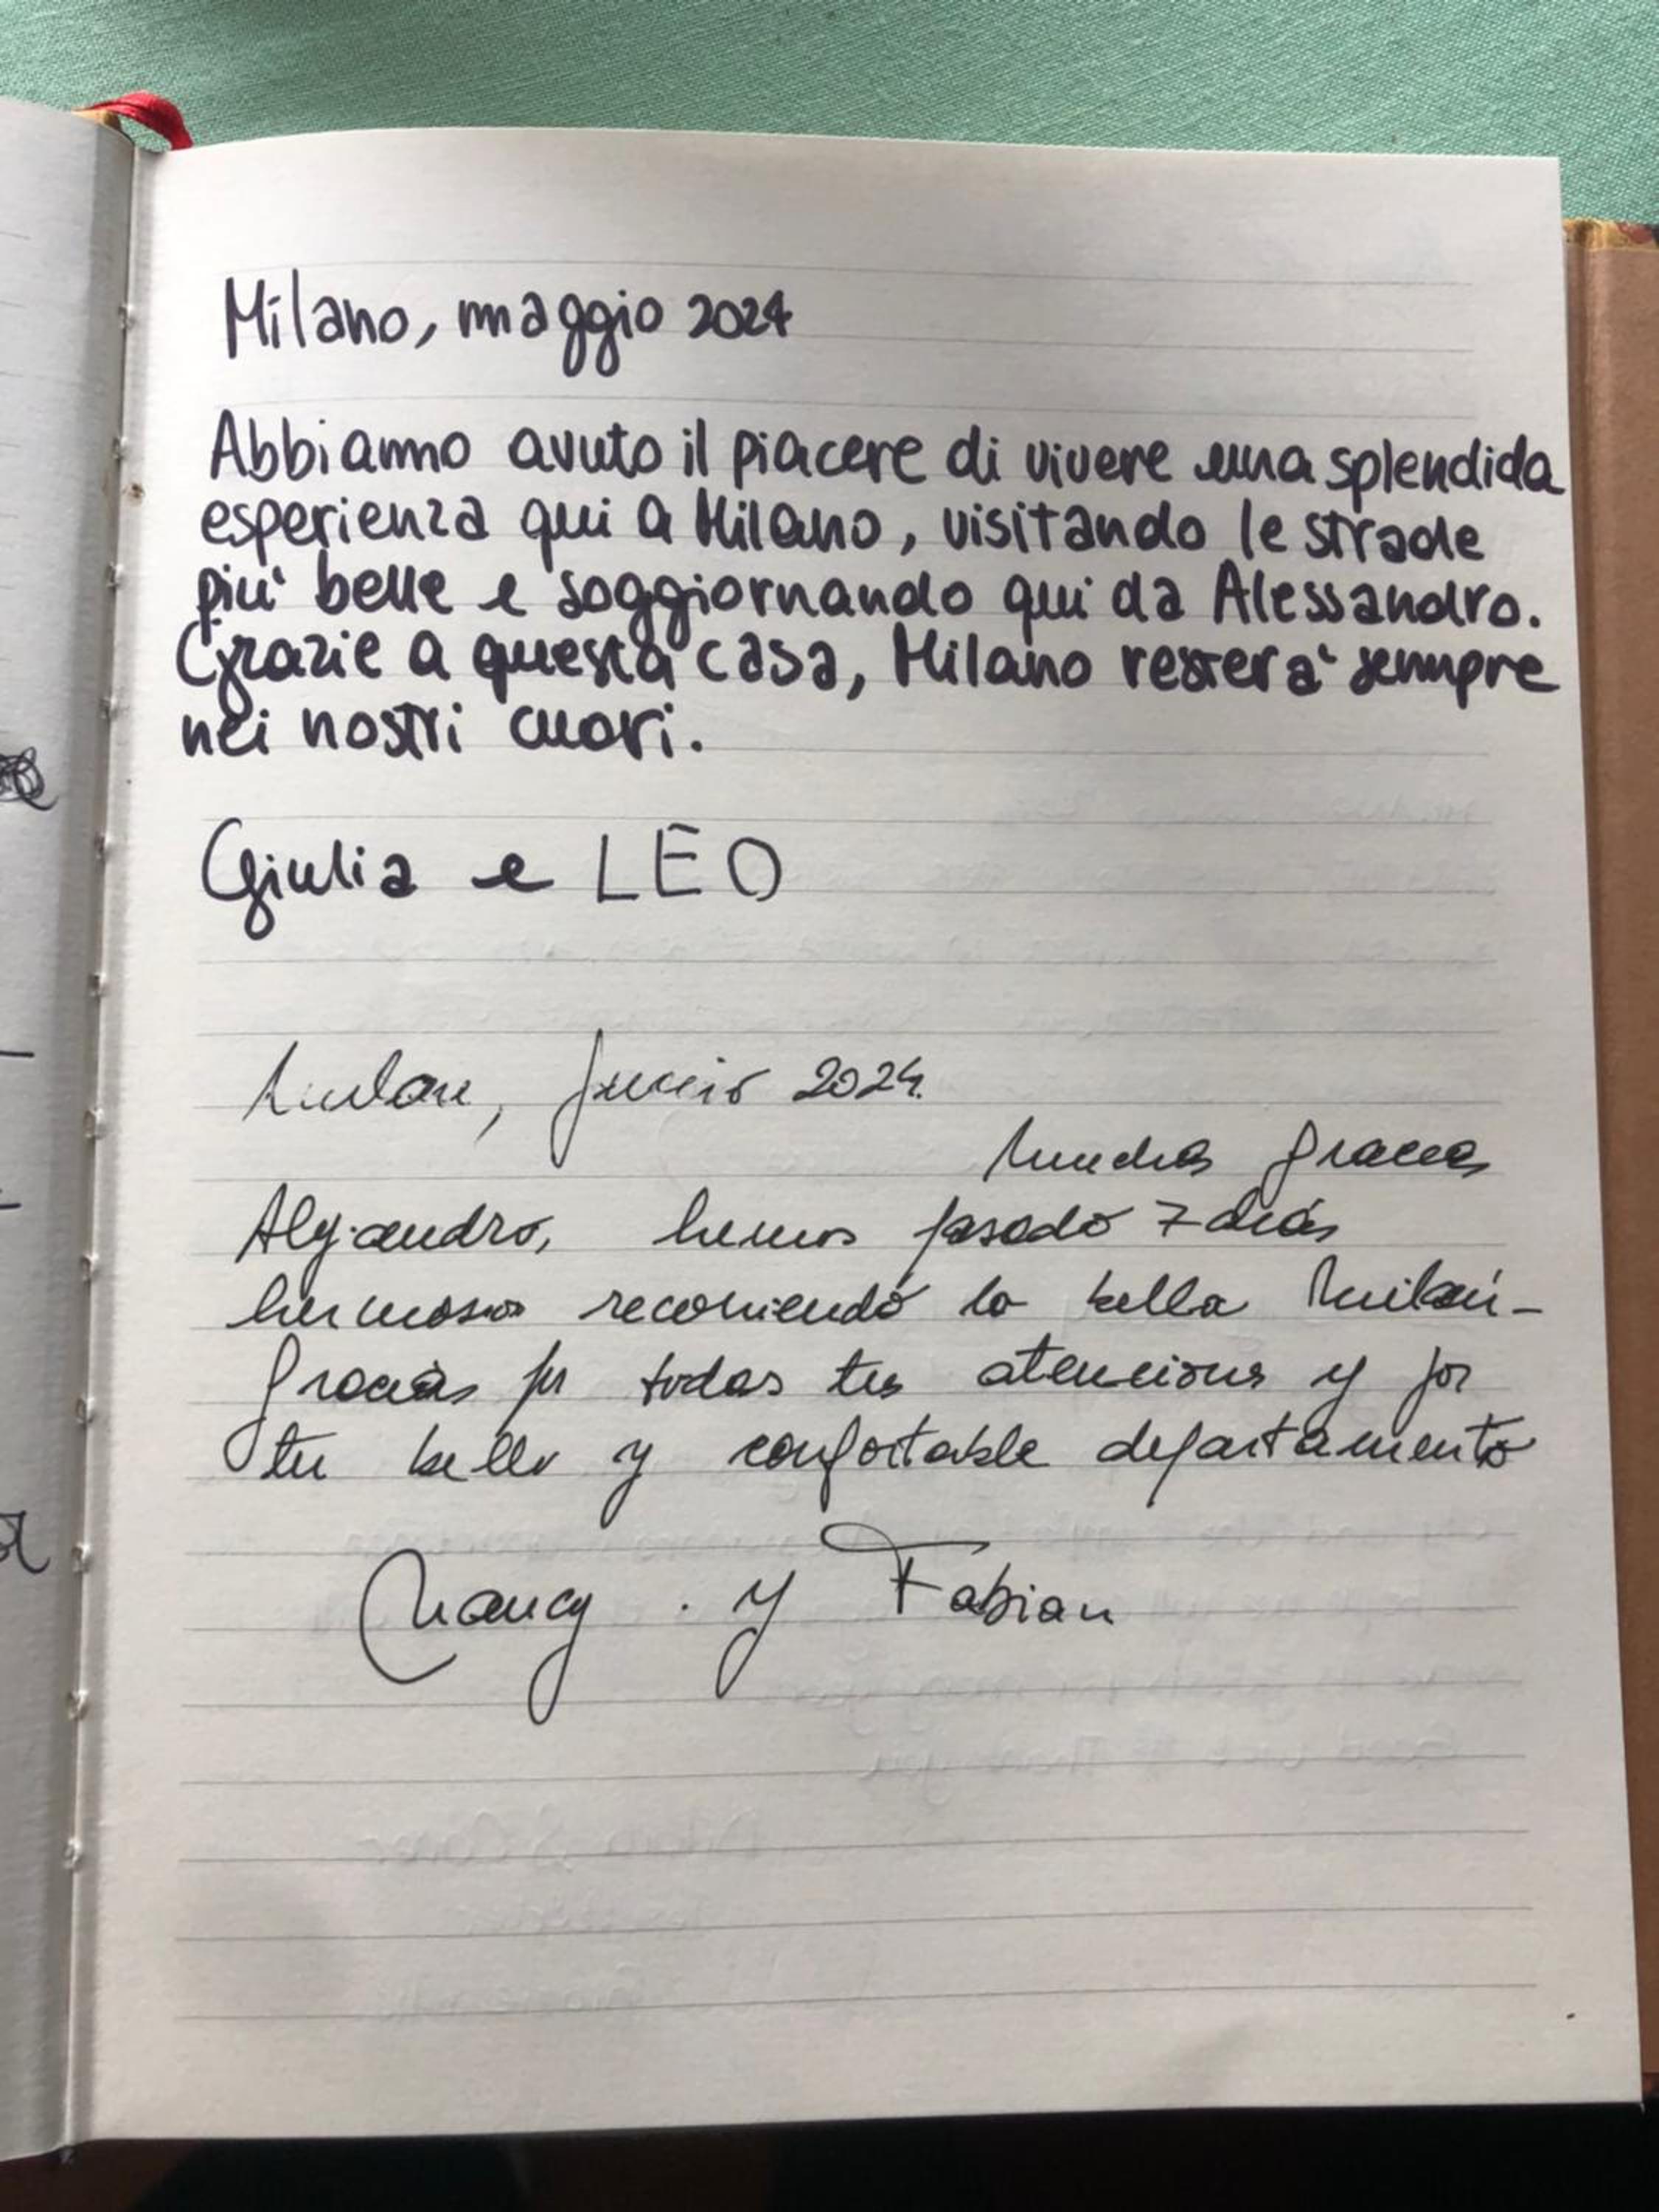 Milano, maggio 2024
Abbiamo avuto il piacere di vivere una splendida
esperienza qui a Milano, visitando le strade
più belle e soggiornando qui da Alessandro.
Grazie a questa casa, Milano resterà sempre
nei nostri cuori.
Giulia e LEO
Milan, Junio 2024.
Muchas gracias
Alejandro, hemos pasado 7 días
hermosos recorriendo la bella Milán-
Gracias por todas tus atenciones y por
tu bello y confortable departamento
Nancy. y Fabian